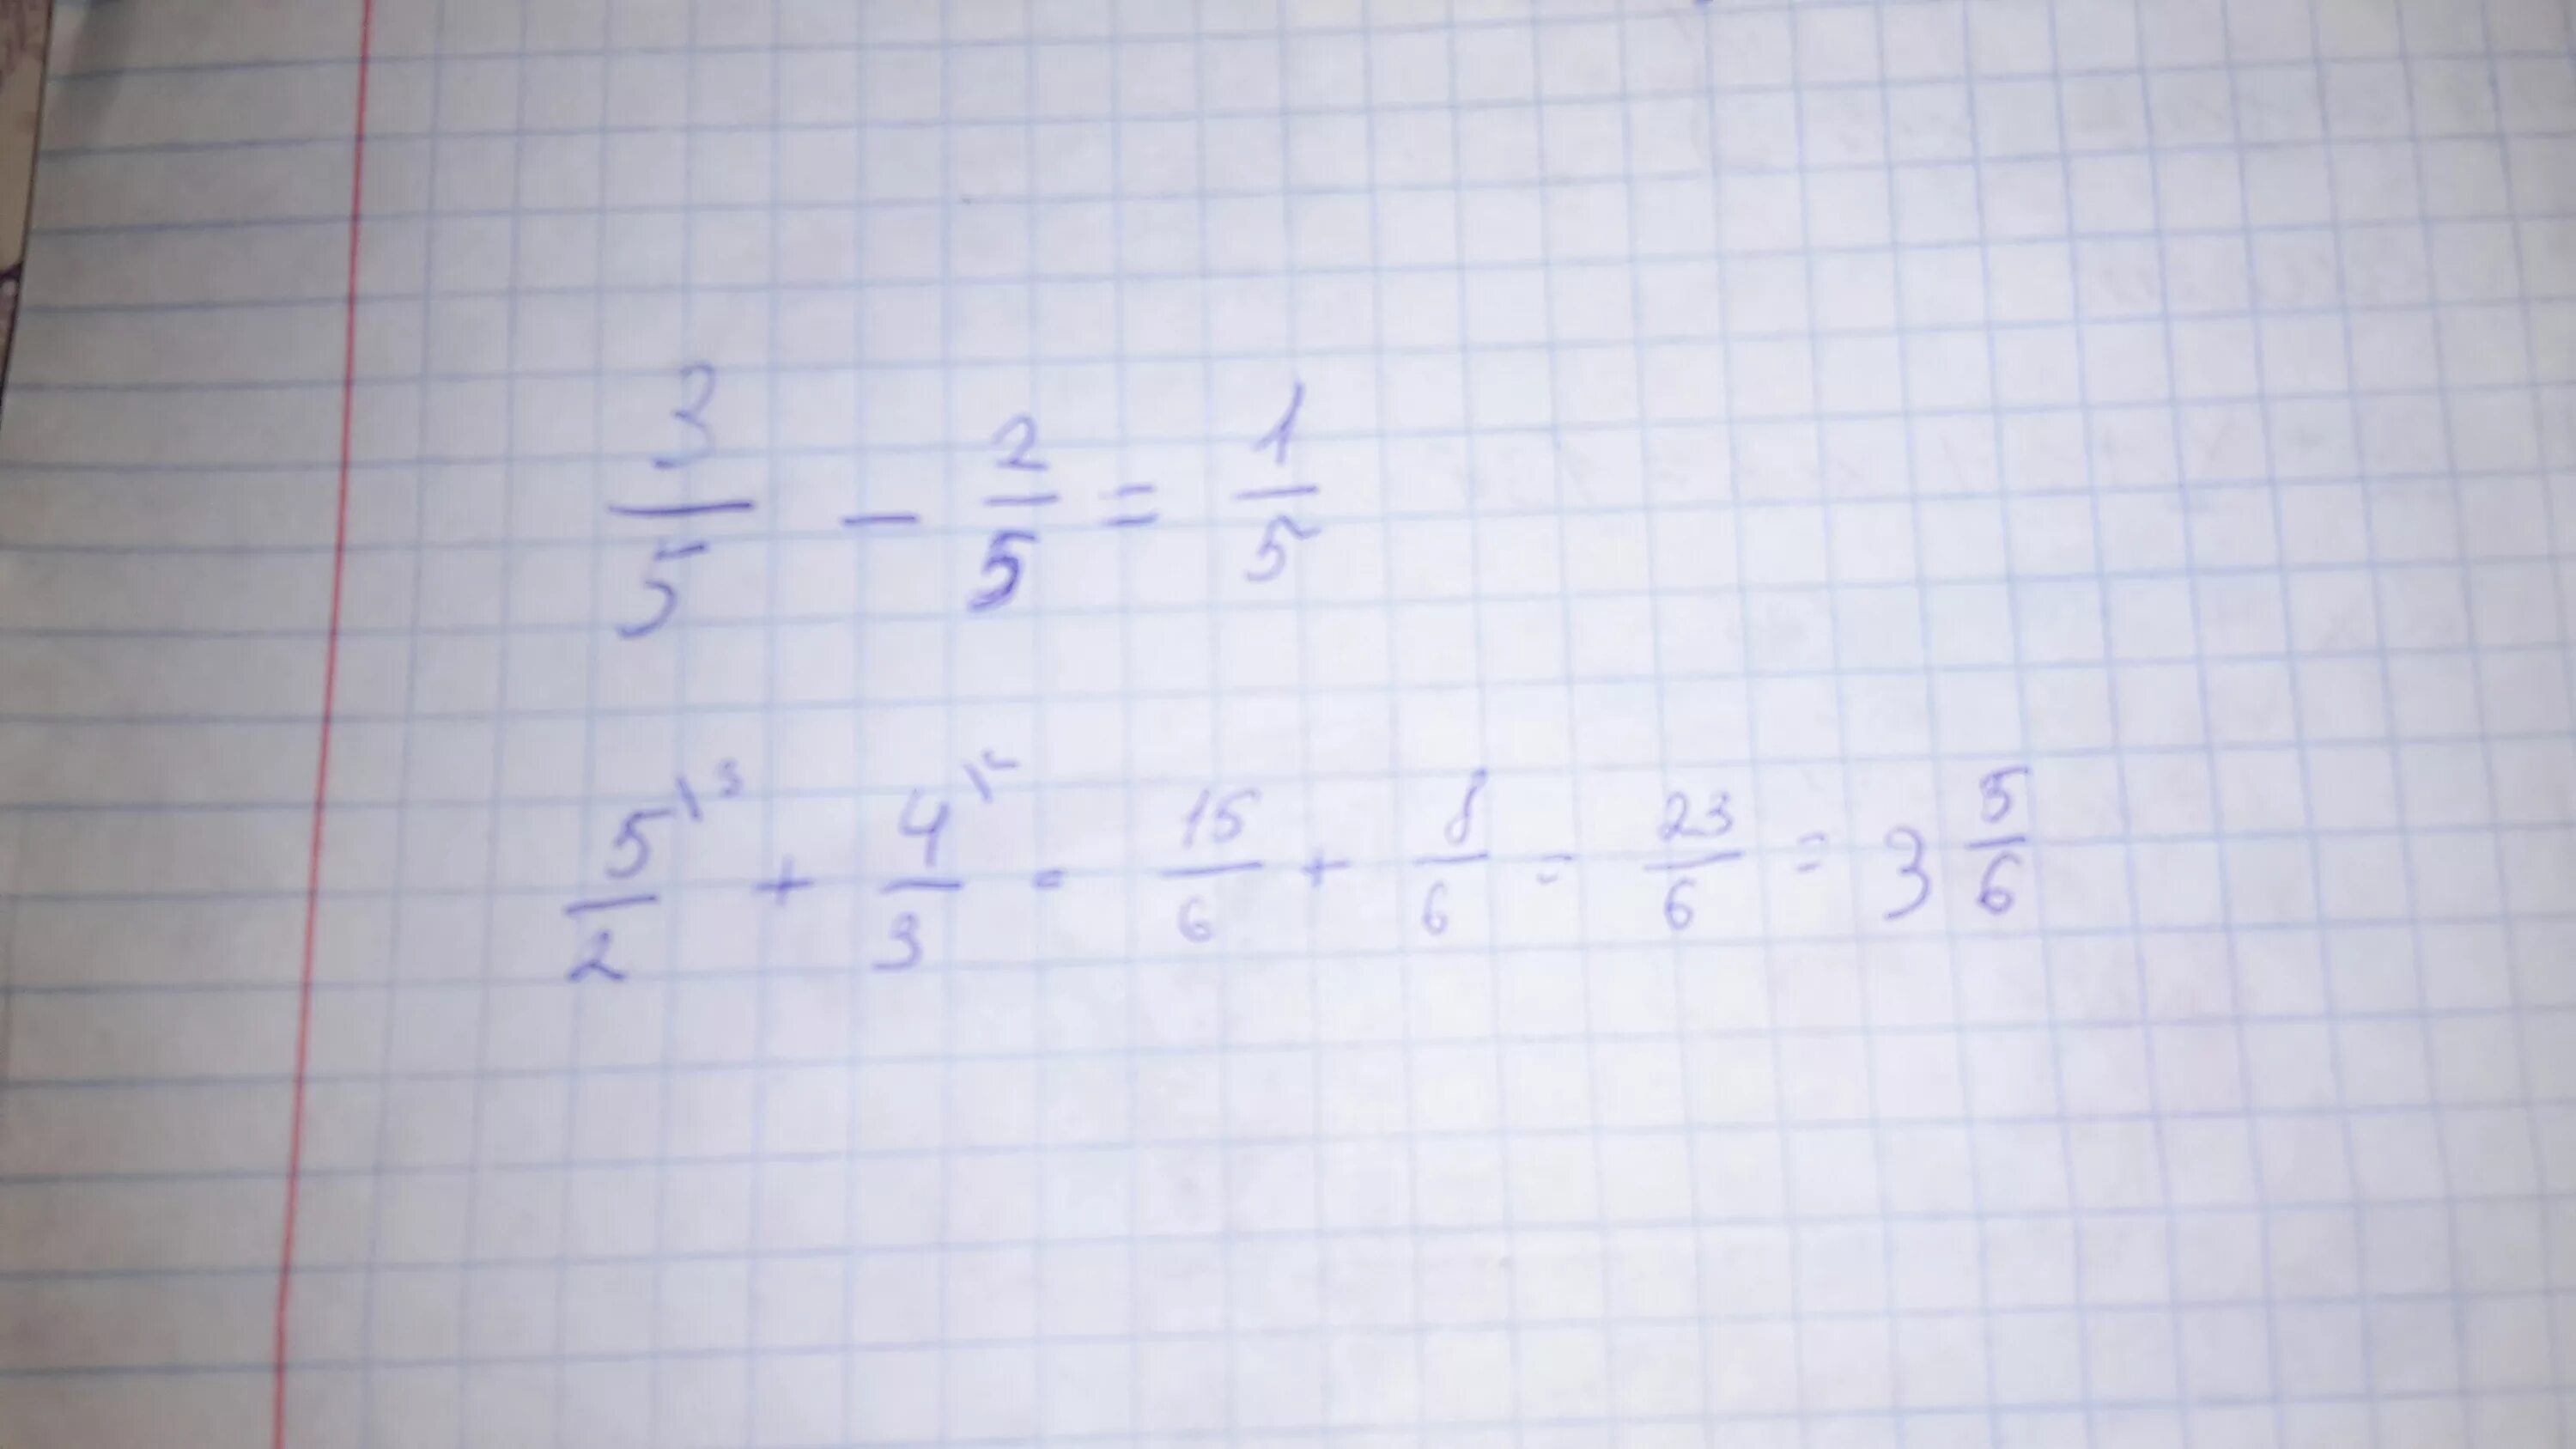 3/5 - 2/5 = 1/5
5/2 \3 + 4/3 \2 = 15/6 + 8/6 = 23/6 = 3 5/6